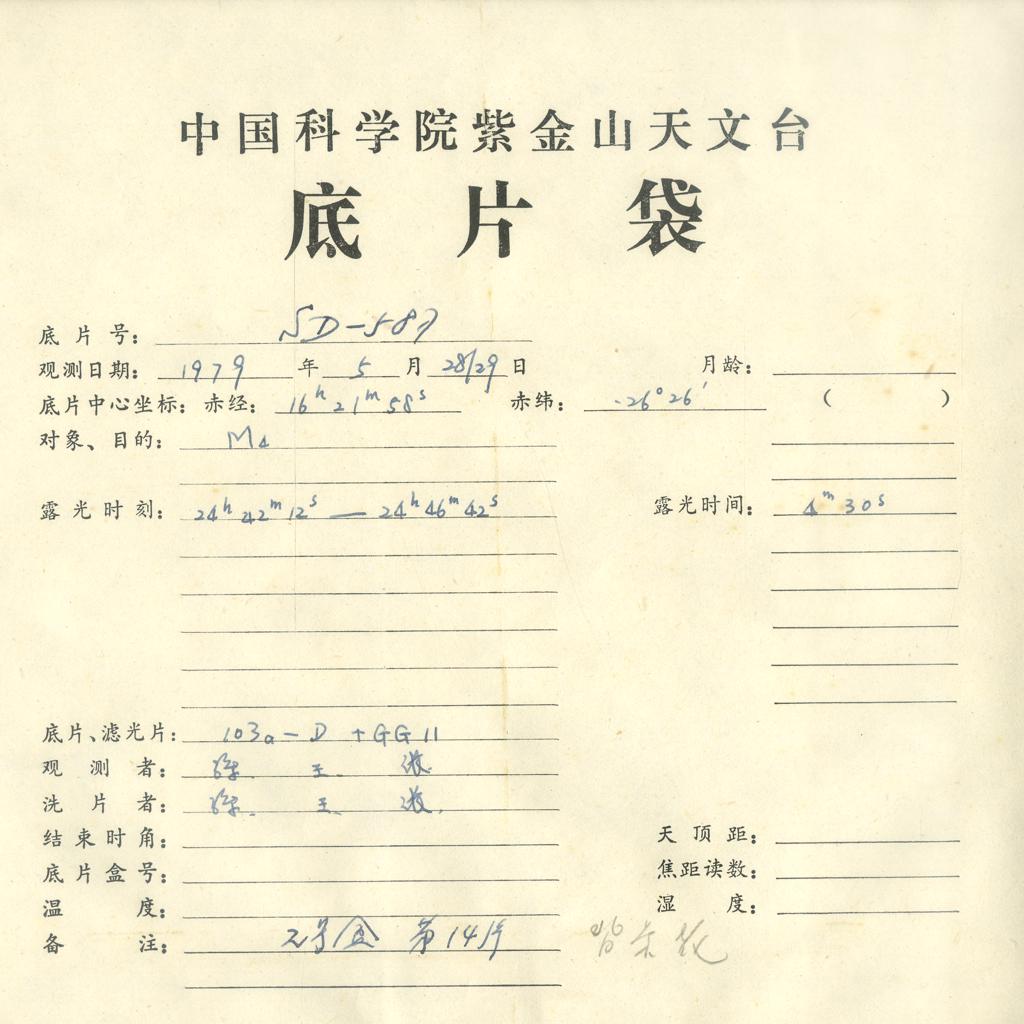 中国科学院紫金山天文台
底片袋
底片号: SD-587
观测日期: 1979 年 5 月 28/29 日 月龄:
底片中心坐标: 赤经: 16h 21m 58s 赤纬: -26°26′ ( )
对象、目的: M4
露光时刻: 24h 42m 12s — 24h 46m 42s 露光时间: 4m 30s
底片、滤光片: 103a-D + GG11
观测者: 王
洗片者: 王
结束时角: 天顶距:
底片盒号: 焦距读数:
温度: 湿度:
备注: 2号盒 第14片